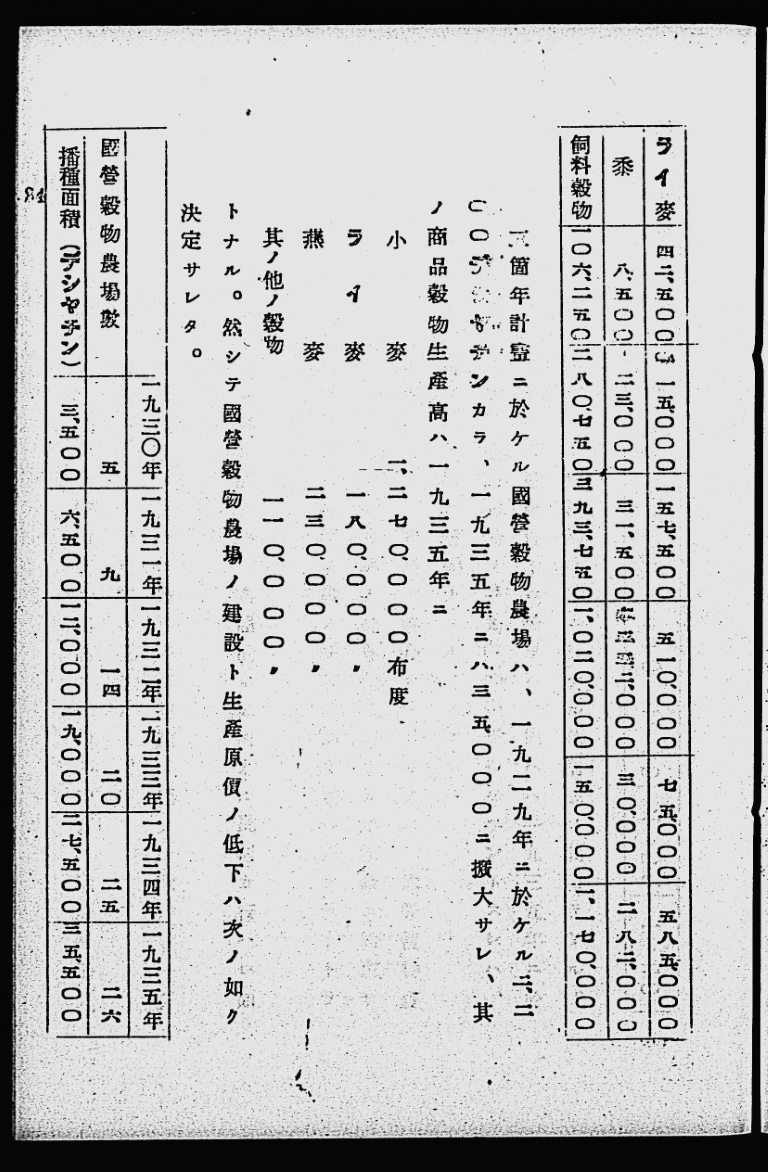 ライ麥 四二、五〇〇 一一五、〇〇〇 一五七、五〇〇 五一〇、〇〇〇 七五、〇〇〇 五八五、〇〇〇
黍 八、五〇〇 二三、〇〇〇 三一、五〇〇 二、〇〇〇 三〇、〇〇〇 二八二、〇〇〇
飼料穀物 一〇六、二五〇 二八〇、七五〇 三九三、七五〇 一、〇二〇、〇〇〇 一五〇、〇〇〇 一、一七〇、〇〇〇
箇年計畫ニ於ケル國營穀物農場ハ、一九二九年ニ於ケル三、二
〇〇デシヤチンカラ、一九三五年ニハ三五、〇〇〇ニ擴大サレ、其
ノ商品穀物生産高ハ一九三五年ニ
小麥 一、二七〇、〇〇〇布度
ライ麥 一八〇、〇〇〇〃
燕麥 二三〇、〇〇〇〃
其ノ他ノ穀物 一一〇、〇〇〇〃
トナル。然シテ國營穀物農場ノ建設ト生産原價ノ低下ハ次ノ如ク
決定サレタ。
一九三〇年 一九三一年 一九三二年 一九三三年 一九三四年 一九三五年
國營穀物農場數 五 九 一四 二〇 二五 二六
播種面積(デシヤチン) 三、五〇〇 六、五〇〇 一二、〇〇〇 一九、〇〇〇 二七、五〇〇 三五、五〇〇